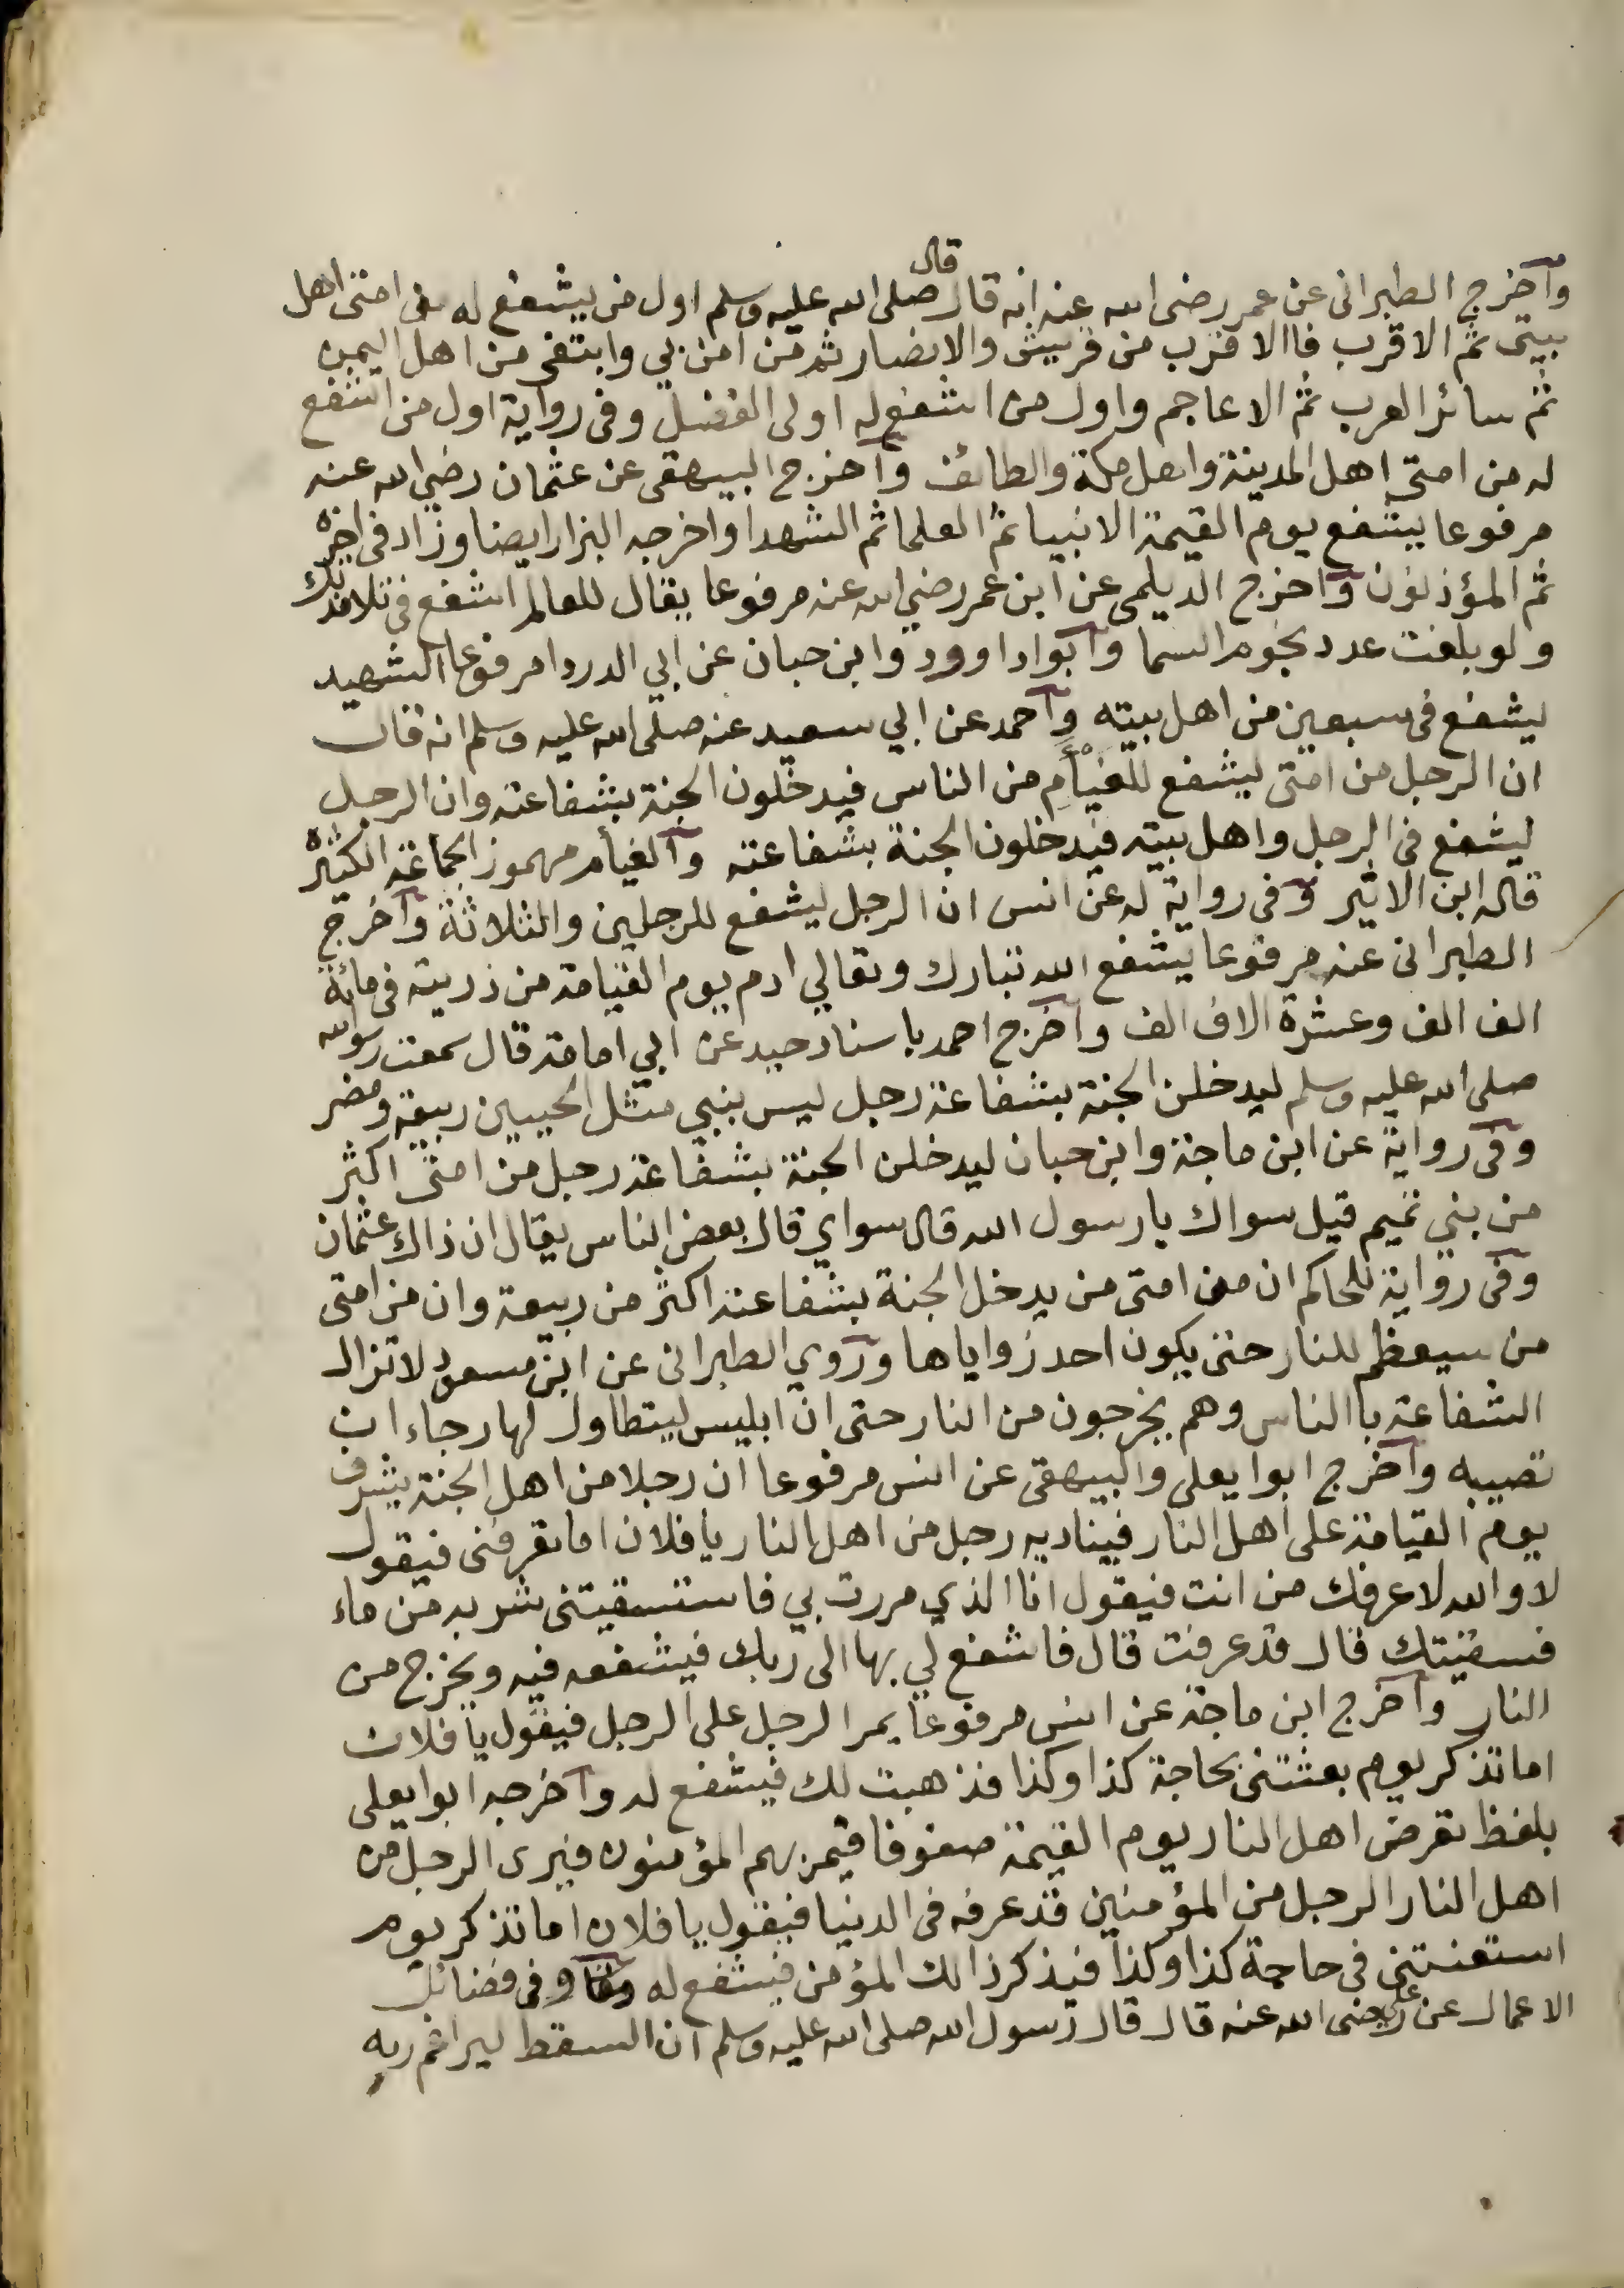 واخرج الطبرانى عن عمر رضى الله عنه انه قال قال صلى الله عليه وسلم اول من يشفع له من امتى اهل
بيتى ثم الاقرب فاالاقرب من قريش والانصار ثم من امن بي وابتغى من اهل اليمن
ثم سائر العرب ثم الاعاجم واول من اشفع له اولى الفضل وفى رواية اول من اشفع
له من امتى اهل المدينة واهل مكة والطائف واخرج البيهقى عن عثمان رضي الله عنه
مرفوعا يشفع يوم القيمة الانبيا ثم العلما ثم الشهدا واخرجه البزار ايضا وزاد فى اخره
ثم المؤذنون واخرج الديلمى عن ابن عمر رضي الله عنه مرفوعا يقال للعالم اشفع فى تلامذتك
ولو بلغت عدد نجوم السما وابوا داوود وابن حبان عن ابي الدردا مرفوعا الشهيد
ليشفع فى سبعين من اهل بيته واحمد عن ابي سعيد عنه صلى الله عليه وسلم انه قال
ان الرجل من امتى ليشفع للفيأم من الناس فيدخلون الجنة بشفاعته وان الرجل
ليشفع فى الرجل واهل بيته فيدخلون الجنة بشفاعته والفيأم مهموز الجماعة الكثيره
قاله ابن الاثير وفى رواية له عن انس ان الرجل ليشفع للرجلين والثلاثة واخرج
الطبرانى عنه مرفوعا يشفع الله تبارك وتعالي ادم يوم القيامة من ذريته فى مائة
الف الف وعشرة الاف الف واخرج احمد باسناد جيد عن ابي امامة قال سمعت رسول الله
صلى الله عليه وسلم ليدخلن الجنة بشفاعة رجل ليس بنبي مثل الحيين ربيعة ومضر
وفى رواية عن ابن ماجة وابن حبان ليدخلن الجنة بشفاعة رجل من امتى اكثر
من بني تميم قيل سواك يا رسول الله قال سواي قال بعض الناس يقال ان ذاك عثمان
وفى رواية للحاكم ان من امتى من يدخل الجنة بشفاعته اكثر من ربيعة وان من امتى
من سيعظم للنار حتى يكون احد زواياها وروي الطبرانى عن ابن مسعود لا تزال
الشفاعة باالناس وهم يخرجون من النار حتى ان ابليس ليتطاول لها رجاء ان
تصيبه واخرج ابوا يعلى والبيهقى عن انس مرفوعا ان رجلا من اهل الجنة يشرف
يوم القيامة على اهل النار فيناديه رجل من اهل النار يا فلان اما تعرفنى فيقول
لا والله لا عرفك من انت فيقول انا الذي مررت بي فاستسقيتنى شربه من ماء
فسقيتك قال قد عرفت قال فاشفع لي بها الى ربك فيشفعه فيه ويخرج من
النار واخرج ابن ماجة عن انس مرفوعا يمر الرجل على الرجل فيقول يا فلان
اما تذكر يوم بعثتنى بحاجة كذا وكذا فذهبت لك فيشفع له واخرجه ابوا يعلى
بلفظ تعرض اهل النار يوم القيمة صفوفا فيمر بهم المؤمنون فيرى الرجل من
اهل النار الرجل من المؤمنين قد عرفه فى الدنيا فيقول يا فلان اما تذكر يوم
استعنتنى فى حاجة كذا وكذا فيذكر ذالك المؤمن فيشفع له وفى فضائل
الاعمال عن على رضى الله عنه قال قال رسول الله صلى الله عليه وسلم ان السقط ليراغم ربه